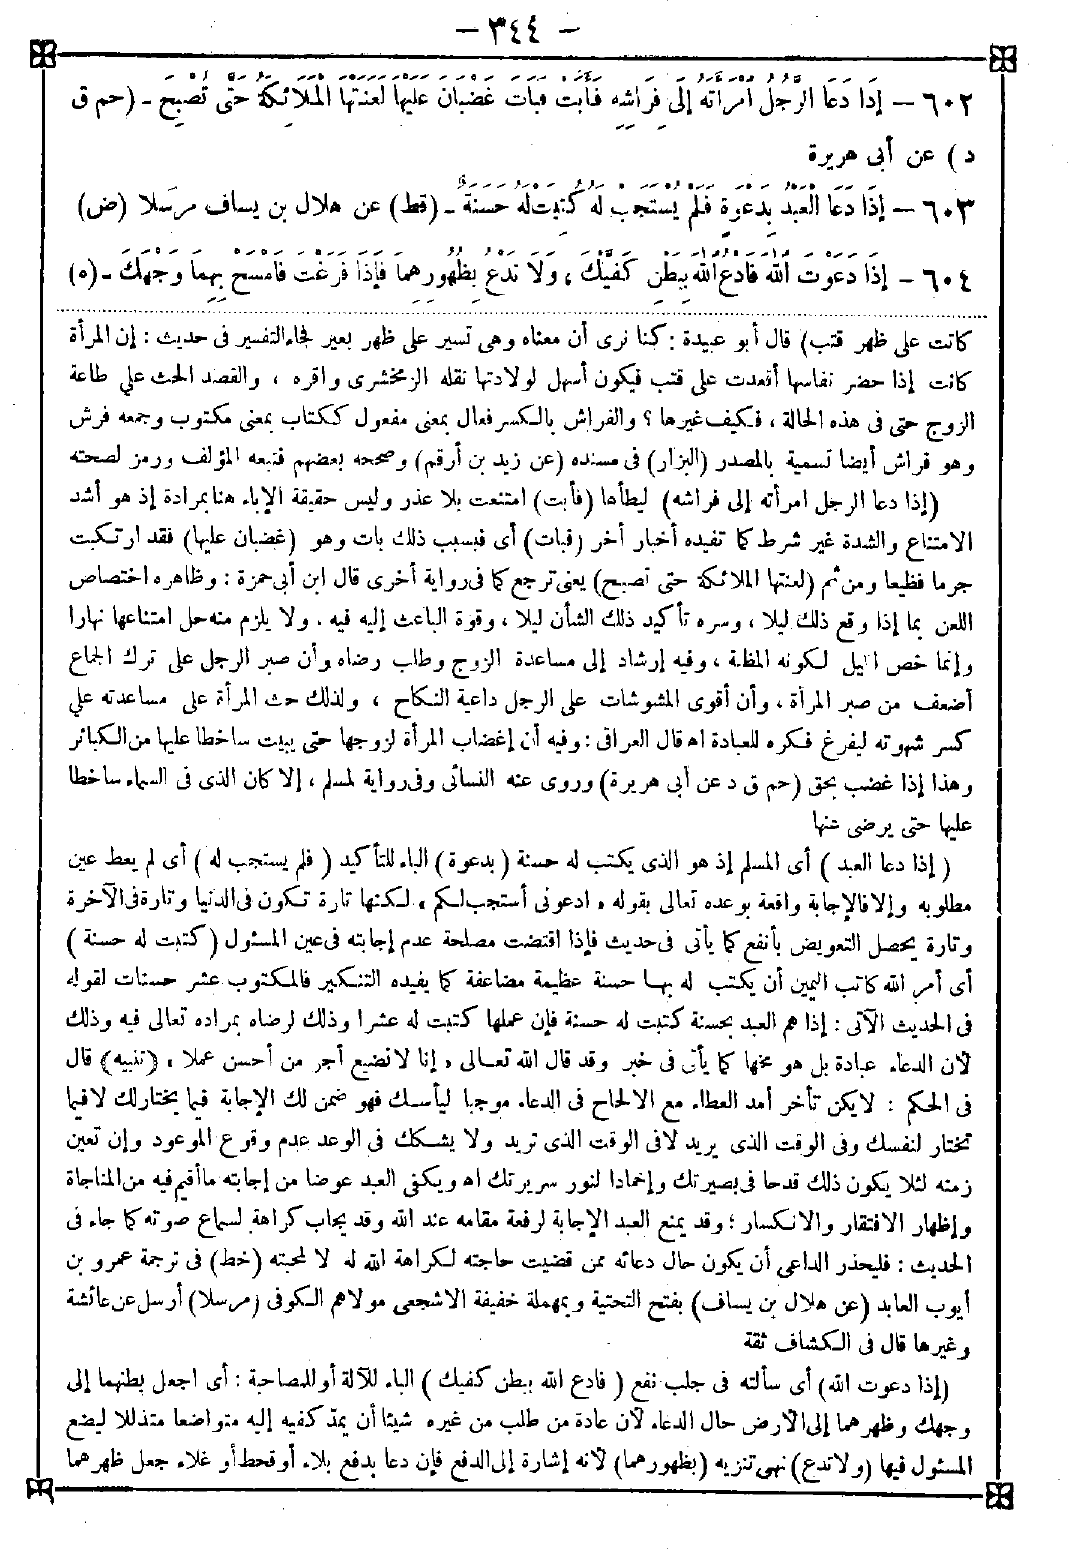 - ٣٤٤ -
٦٠٢ - إِذَا دَعَا الرَّجُلُ امْرَأَتَهُ إِلَى فِرَاشِهِ فَأَبَتْ فَبَاتَ غَضْبَانَ عَلَيْهَا لَعَنَتْهَا الْمَلَائِكَةُ حَتَّى تُصْبِحَ - (حم ق
د) عن أبى هريرة
٦٠٣ - إِذَا دَعَا الْعَبْدُ بِدَعْوَةٍ فَلَمْ يُسْتَجَبْ لَهُ كُتِبَتْ لَهُ حَسَنَةٌ - (قط) عن هلال بن يساف مرسلا (ض)
٦٠٤ - إِذَا دَعَوْتَ اللهَ فَادْعُ اللهَ بِبَطْنِ كَفَّيْكَ، وَلَا تَدْعُ بِظُهُورِهِمَا فَإِذَا فَرَغْتَ فَامْسَحْ بِهِمَا وَجْهَكَ - (ه)
كانت على ظهر قتب) قال أبو عبيدة : كنا نرى أن معناه وهى تسير على ظهر بعير لجاء التفسير فى حديث : إن المرأة
كانت إذا حضر نفاسها أقعدت على قتب فيكون أسهل لولادتها نقله الزمخشرى واقره ، والقصد الحث علي طاعة
الزوج حتى فى هذه الحالة ، فكيف غيرها ؟ والفراش بالكسر فعال بمعنى مفعول ككتاب بمعنى مكتوب وجمعه فرش
وهو فراش أيضا تسمية بالمصدر (البزار) فى مسنده (عن زيد بن أرقم) وصححه بعضهم فتبعه المؤلف ورمز لصحته
(إذا دعا الرجل امرأته إلى فراشه) ليطأها (فأبت) امتنعت بلا عذر وليس حقيقة الإباء هنا بمرادة إذ هو أشد
الامتناع والشدة غير شرط كما تفيده أخبار أخر (فبات) أى فبسبب ذلك بات وهو (غضبان عليها) فقد ارتكبت
جرما فظيعا ومن ثم (لعنتها الملائكة حتى تصبح) يعنى ترجع كما فى رواية أخرى قال ابن أبى حمزة : وظاهره اختصاص
اللعن بما إذا وقع ذلك ليلا ، وسره تأكيد ذلك الشأن ليلا ، وقوة الباعث إليه فيه . ولا يلزم منه حل امتناعها نهارا
وإنما خص الليل لكونه المظنة ، وفيه إرشاد إلى مساعدة الزوج وطلب رضاه وأن صبر الرجل على ترك الجماع
أضعف من صبر المرأة ، وأن أقوى المشوشات على الرجل داعية النكاح ، ولذلك حث المرأة على مساعدته علي
كسر شهوته ليفرغ فكره للعبادة اه قال العراقى : وفيه أن إغضاب المرأة لزوجها حتى يبيت ساخطا عليها من الكبائر
وهذا إذا غضب بحق (حم ق د عن أبى هريرة) وروى عنه النسائى وفى رواية لمسلم ، إلا كان الذى فى السماء ساخطا
عليها حتى يرضى عنها
( إذا دعا العبد ) أى المسلم إذ هو الذى يكتب له حسنة ( بدعوة) الباء للتأكيد ( فلم يستجب له ) أى لم يعط عين
مطلوبه وإلا فالإجابة واقعة بوعده تعالى بقوله ، ادعونى أستجب لكم ، لكنها تارة تكون فى الدنيا وتارة فى الآخرة
وتارة يحصل التعويض بأنفع كما يأتى فى حديث فإذا اقتضت مصلحة عدم إجابته فى عين المسئول (كتبت له حسنة )
أى أمر الله كاتب اليمين أن يكتب له بها حسنة عظيمة مضاعفة كما يفيده التنكير فالمكتوب عشر حسنات لقوله
فى الحديث الآتى : إذا هم العبد بحسنة كتبت له حسنة فإن عملها كتبت له عشرا وذلك لرضاه بمراده تعالى فيه وذلك
لأن الدعاء عبادة بل هو مخها كما يأتى فى خبر وقد قال الله تعالى ، إنا لا نضيع أجر من أحسن عملا ، (تنبيه) قال
فى الحكم : لا يكن تأخر أمد العطاء مع الالحاح فى الدعاء موجبا ليأسك فهو ضمن لك الإجابة فيما يختار لك لا فيما
تختار لنفسك وفى الوقت الذى يريد لا فى الوقت الذى تريد ولا يشكك فى الوعد عدم وقوع الموعود وإن تعين
زمنه لئلا يكون ذلك قدحا فى بصيرتك وإخمادا لنور سريرتك اه ويكفى العبد عوضا من إجابته ما أقيم فيه من المناجاة
وإظهار الافتقار والانكسار ؛ وقد يمنع العبد الإجابة لرفعة مقامه عند الله وقد يجاب كراهة لسماع صوته كما جاء فى
الحديث : فليحذر الداعى أن يكون حال دعائه ممن قضيت حاجته لكراهة الله له لا لمحبته (خط) فى ترجمة عمرو بن
أيوب العابد (عن هلال بن يساف) بفتح التحتية وبمهملة خفيفة الاشجعى مولاهم الكوفى (مرسلا) أرسل عن عائشة
وغيرها قال فى الكشاف ثقة
(إذا دعوت الله) أى سألته فى جلب نفع ( فادع الله ببطن كفيك ) الباء للآلة أو للمصاحبة : أى اجعل بطنهما إلى
وجهك وظهرهما إلى الأرض حال الدعاء لأن عادة من طلب من غيره شيئا أن يمد كفيه إليه متواضعا متذللا ليضع
المسئول فيها (ولا تدع) نهى تنزيه (بظهورهما) لأنه إشارة إلى الدفع فإن دعا بدفع بلاء أو قحط أو غلاء جعل ظهرهما